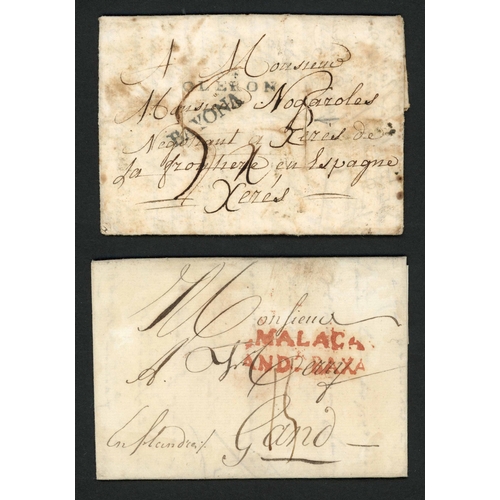 A Monsieur
OLERON
Monsieur Nogaroles
BAYONA
Négotiant a Xeres de
La frontiere en Espagne
Xerés
Monsieur
MALAGA
A.
ANDALUXA
En flandres
Gand